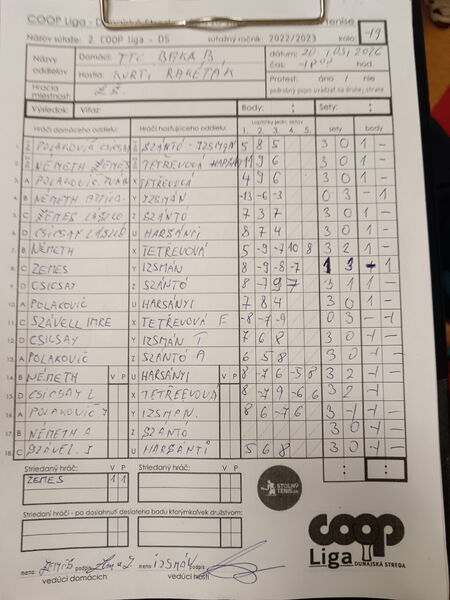 COOP Liga - Dunajská Streda
Názov súťaže: 2. COOP liga - DS súťažný ročník: 2022/2023 kolo: -19
Názvy oddielov Domáci: TTC BAKA B dátum: 20
Hostia: KURTI RAKÉTÁK čas: hod.
Hracia miestnosť: Protest: áno / nie
podrobný popis uviesť na druhej strane
Výsledok: Víťaz: Body: : Sety: :
Hráči domáceho oddielu: Hráči hosťujúceho oddielu: 1. 2. 3. 4. 5. sety body
1. POLAKOVIČ CSICSAY SZÁNTÓ - IZSMÁN 5 8 5 3 0 1 -
2. NÉMETH ZEMES TETREVOVÁ 11 9 6 3 0 1 -
3. A POLAKOVIČ X TETREVOVÁ 4 9 6 3 0 1 -
4. B NÉMETH ATTILA Y IZSMÁN -13 -6 -3 0 3 - 1
5. C ZEMES LÁSZLÓ Z SZÁNTÓ 7 3 7 3 0 1 -
6. D CSICSAY LÁSZLÓ U HARSÁNYI 8 7 4 3 0 1 -
7. B NÉMETH X TETREVOVÁ 5 -9 -7 10 8 3 2 1 -
8. C ZEMES Y IZSMÁN 8 -9 -8 -7 1 3 - 1
9. D CSICSAY Z SZÁNTÓ 8 -7 9 7 3 1 1 -
10. A POLAKOVIČ U HARSÁNYI 7 8 4 3 0 1 -
11. C SZÁVELL IMRE X TETREVOVA E -8 -7 -9 0 3 - 1
12. D CSICSAY Y IZSMÁN T 7 6 8 3 0 1 -
13. A POLAKOVIČ Z SZÁNTÓ A 6 5 8 3 0 1 -
14. B NÉMETH V P U HARSÁNYI V P 8 -7 6 -5 8 3 2 1 -
15. D CSICSAY L X TETREEVOVÁ 8 -7 9 -6 6 3 2 1
16. A POLAKOVIČ Y IZSMÁN. 8 6 -7 6 3 1 1 -
17. B NÉMETH A Z SZÁNTÓ 3 0 1 -
18. C SZÁVEL. I U HARSÁNYI 5 6 8 3 0 1 -
Striedaný hráč: V P Striedaný hráč: V P : :
ZEMES 1 1
STOLNÝ TENIS.SK
Striedaní hráči - po dosiahnutí desiateho bodu ktorýmkoľvek družstvom:
coop
Liga DUNAJSKÁ STREDA
meno: ZEMES podpis meno: IZSMÁN podpis
vedúci domácich vedúci hostí